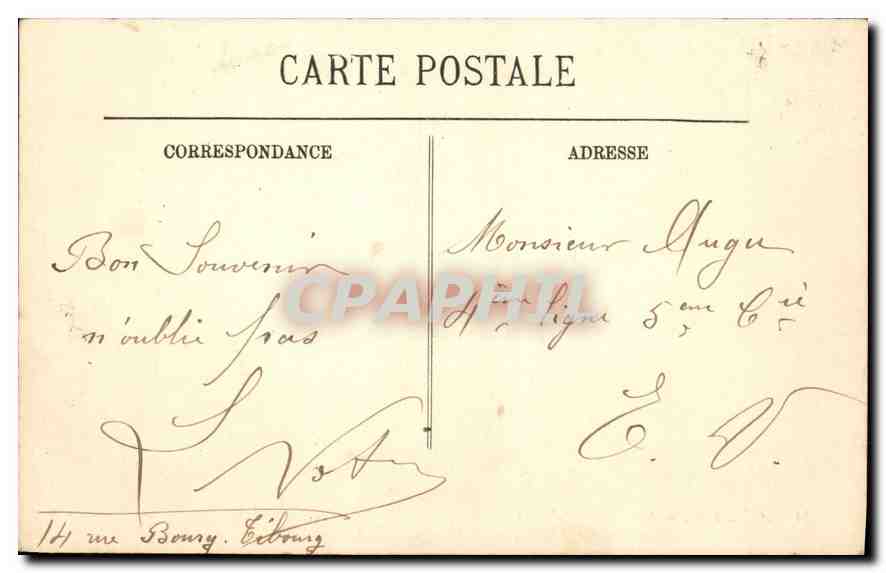 CARTE POSTALE
CORRESPONDANCE
ADRESSE
Bon Souvenir
n'oublie pas
14 rue Bourg. Tibourg
Monsieur Augu
4ème ligne 5ème Cie
E. V.
CPAPHIL